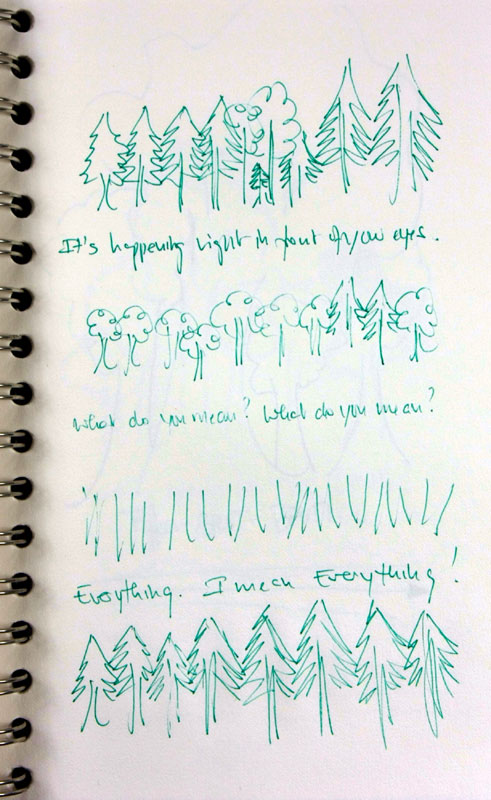 It's happening right in front of your eyes.
What do you mean? What do you mean?
Everything. I mean Everything!